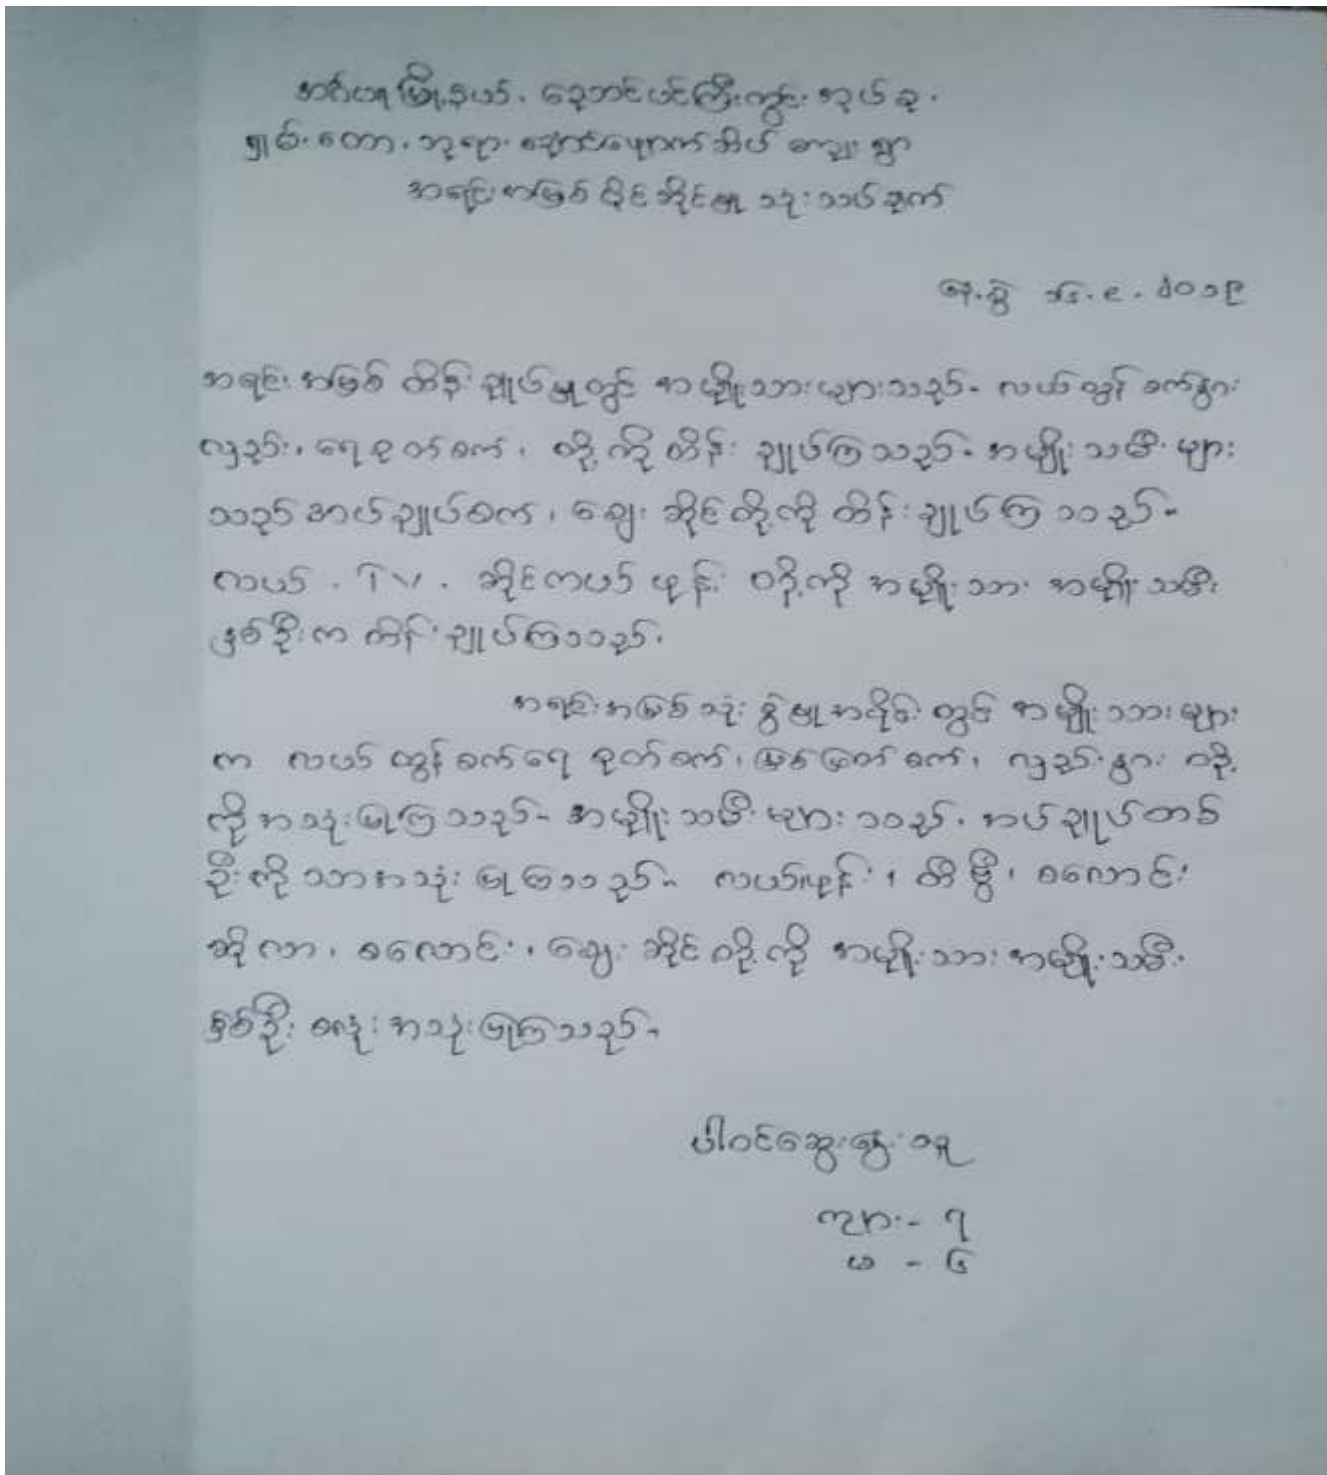 အင်္ဂပူမြို့နယ်၊ ညောင်ပင်ကြီးကွင်း အုပ်စု၊
ရှမ်းတော၊ ဘုရားချောင်းဖျောက်အိပ် စကျူရွာ
အရင်းအမြစ်ပိုင်ဆိုင်မှု သုံးသပ်ချက်
နေ့စွဲ ၁၆.၉.၂၀၁၉
အရင်းအမြစ် ထိန်းချုပ်မှုတွင် အမျိုးသားများသည်- လယ်ထွန်စက်နွား
လှည်း၊ ရေစုတ်စက်၊ တို့ကိုထိန်းချုပ်ကြသည်- အမျိုးသမီးများ
သည် အပ်ချုပ်စက်၊ ဈေးဆိုင်တို့ကို ထိန်းချုပ်ကြသည်-
လယ်၊ TV၊ ဆိုင်ကယ် ဖုန်း တို့ကို အမျိုးသား အမျိုးသမီး
နှစ်ဦးက ထိန်းချုပ်ကြသည်၊
အရင်းအမြစ်သုံးစွဲမှုအပိုင်းတွင် အမျိုးသားများ
က လယ်ထွန်စက်ရေစုတ်စက်၊ မြစ်မြတ်စက်၊ လှည်းနွား တို့
ကိုအသုံးပြုကြသည်- အမျိုးသမီးများသည်၊ အပ်ချုပ်တစ်
ဦးကိုသာအသုံးပြုကြသည်- လယ်၊ဖုန်း၊ တီဗွီ၊ စလောင်း
ဆိုလာ၊ စလောင်း၊ ဈေးဆိုင်တို့ကို အမျိုးသားအမျိုးသမီး
နှစ်ဦးစလုံးအသုံးပြုကြသည်-
ပါဝင်ဆွေးနွေးသူ
ကျား- ၇
မ - ၆